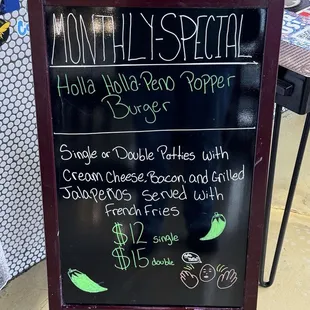 MONTHLY-SPECIAL
Holla Holla-Peno Popper
Burger
Single or Double Patties with
Cream Cheese, Bacon, and Grilled
Jalapeños served with
French Fries
$12 single
$15 double